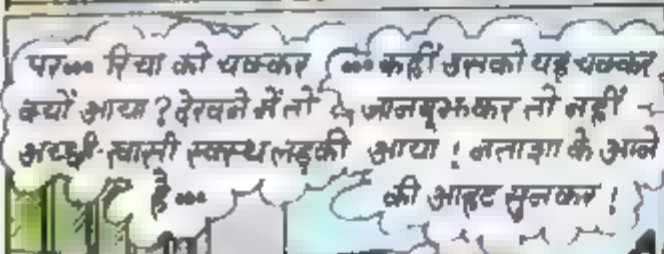 पर... रिया को चक्कर
क्यों आया? देखने में तो
अच्छी-खासी स्वस्थ लड़की
है...
...कहीं उसको यह चक्कर
जानबूझकर तो नहीं
आया! नताशा के आने
की आहट सुनकर!